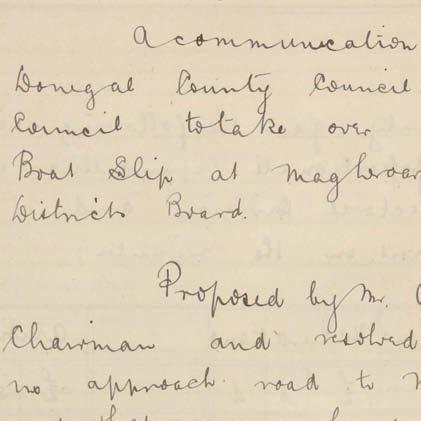 A communication
Donegal County Council
Council to take over
Boat Slip at Magheroar
Districts Board.
Proposed by Mr.
Chairman and resolved
no approach road to